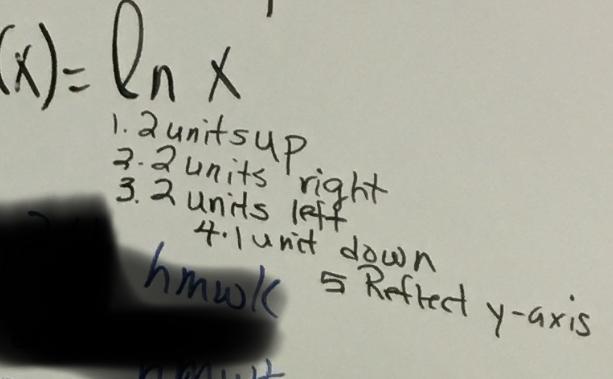 (x) = ln x
1. 2 units up
2. 2 units right
3. 2 units left
4. 1 unit down
5 Reflect y-axis
hmwk